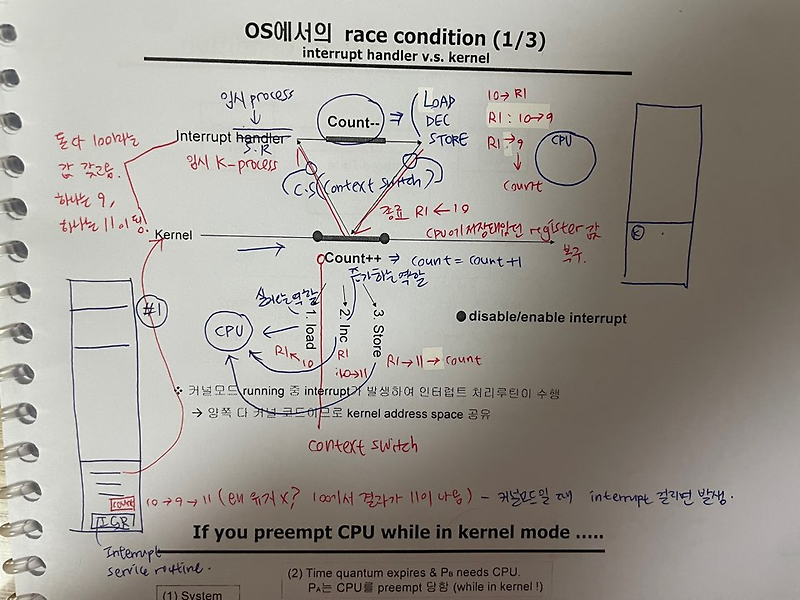 OS에서의 race condition (1/3)
interrupt handler v.s. kernel
임시 process
Count--
⇒ LOAD
DEC
STORE
10→R1
R1 : 10→9
R1→9
↓
count
CPU
Interrupt handler
S.R
임시 K-process
둘다 10이라는
값 갖고옴.
하나는 9,
하나는 11이 됨.
C.S(context switch)
종료 R1←10
CPU에 저장돼있던 register 값
복구.
Kernel
K
Count++ ⇒ count = count+1
증가하는 역할
실어나는 역할
#1
CPU
1. load
2. Inc
3. Store
disable/enable interrupt
R1←10
R1
:10→11
R1→11→count
❖ 커널모드 running 중 interrupt가 발생하여 인터럽트 처리루틴이 수행
→ 양쪽 다 커널 코드이므로 kernel address space 공유
context switch
count
10→9→11 ( 10에서 결과가 11이 나옴) - 커널모드일 때 interrupt 걸리면 발생.
I.S.R
Interrupt
service routine.
If you preempt CPU while in kernel mode .....
(1) System
(2) Time quantum expires & PB needs CPU.
PA는 CPU를 preempt 당함 (while in kernel !)